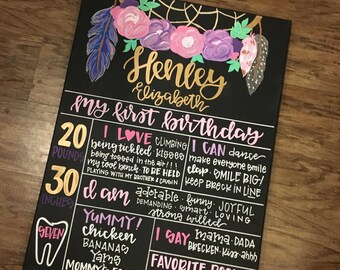 Henley
Elizabeth
my first birthday
20
POUNDS
I LOVE CLIMBING
being tickled KISSES
being tossed in the air!!!
my tool bench TO BE HELD
PLAYING WITH MY BROTHER &
I CAN dance
make everyone smile
clap SMILE BIG!
KEEP BREck IN LINE
30
INCHES
I am adorable funny JOYFUL
DEMANDING smart LOVING
strong willed
SEVEN
YUMMY!
chicken
BANANAS
Yams
MOMMY'S
I SAY MAMA DADA
BRECKEN
FAVORITE